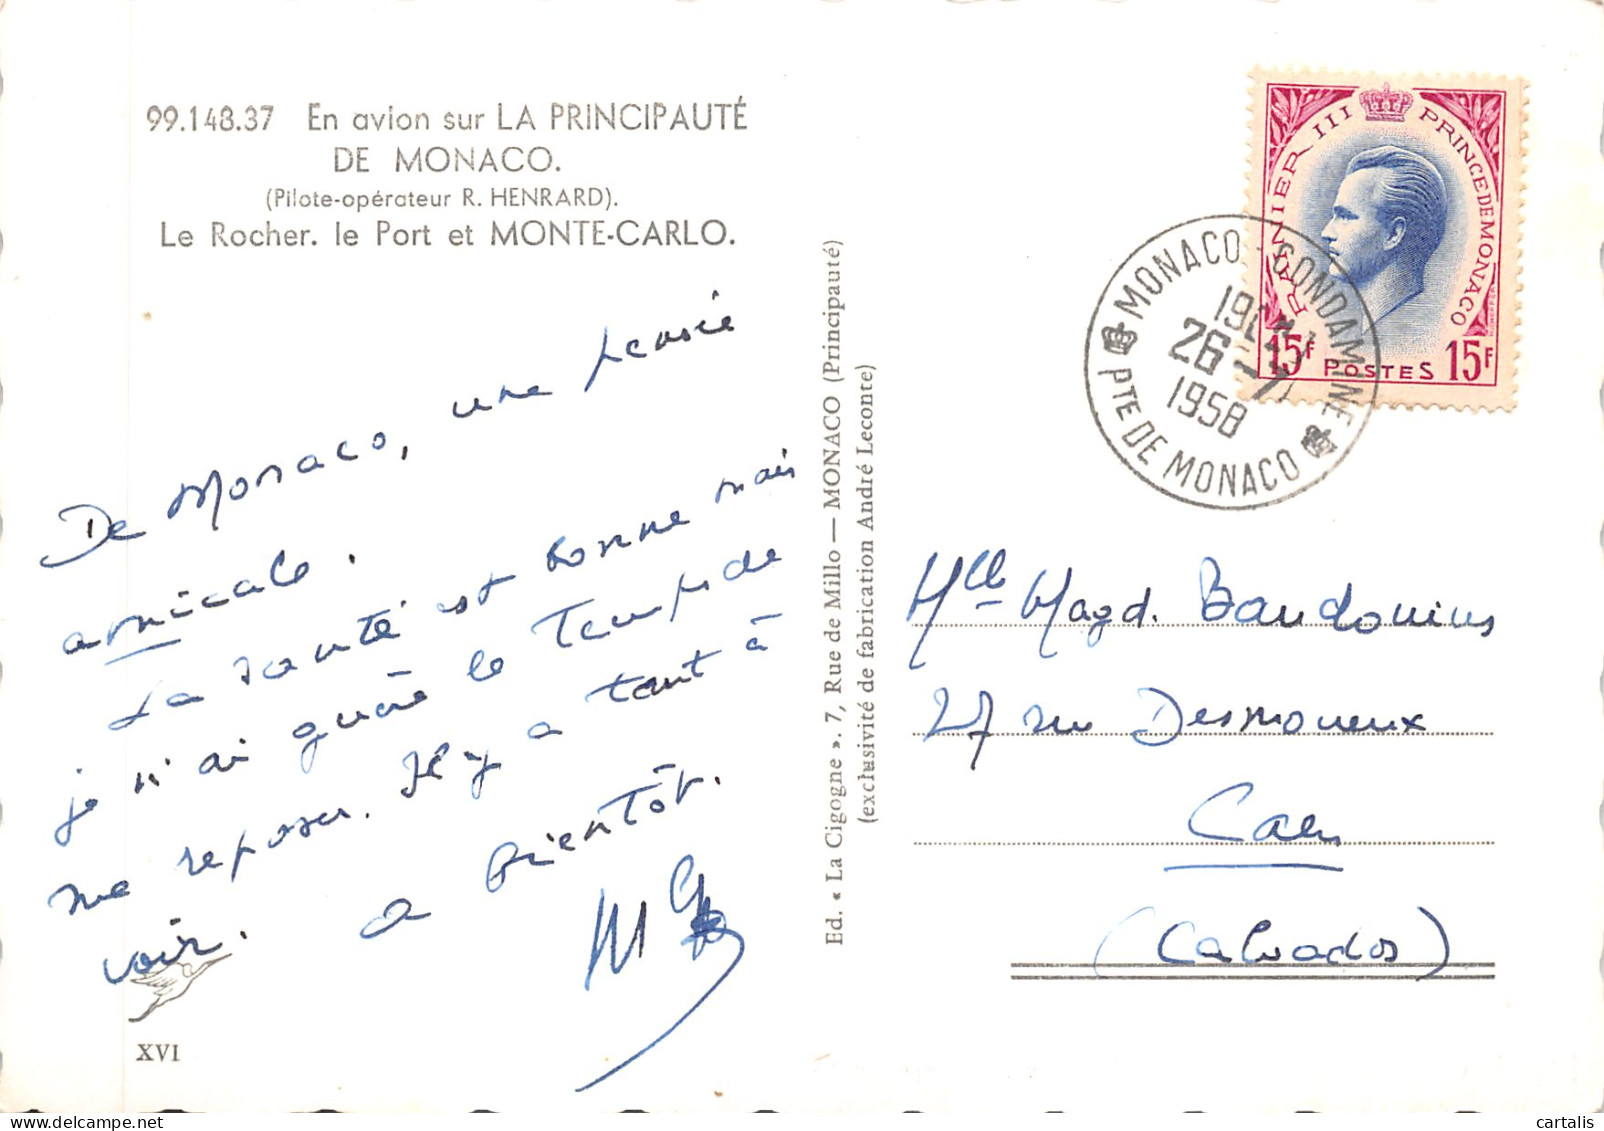 99.148.37 En avion sur LA PRINCIPAUTÉ
DE MONACO.
(Pilote-opérateur R. HENRARD).
Le Rocher. le Port et MONTE-CARLO.
De Monaco, une pensée
amicale.
La santé est bonne mais
je n'ai guère le temps de
me reposer. Il y a tant à
voir. a bientôt.
XVI
Ed. « La Cigogne ». 7, Rue de Millo — MONACO (Principauté)
(exclusivité de fabrication André Leconte)
RAINIER III PRINCE DE MONACO
15F POSTES 15F
MONACO - CONDAMINE
26 - 7
1958
PTE DE MONACO
Mlle Magd. Baudouins
27 rue Desmoueux
Caen
(Calvados)
cartalis
delcampe.net